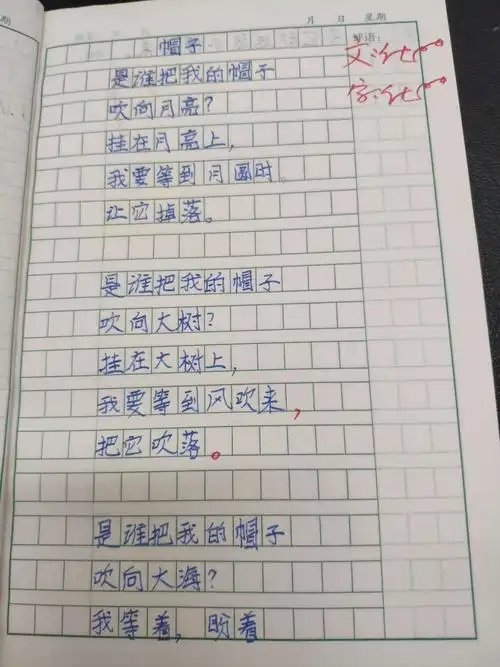 期
月 日 星期
帽子
评语：
文:优
是谁把我的帽子
吹向月亮？
字:优
挂在月亮上，
我要等到月圆时
让它掉落。
是谁把我的帽子
吹向大树？
挂在大树上，
我要等到风吹来，
把它吹落。
是谁把我的帽子
吹向大海？
我等着，盼着